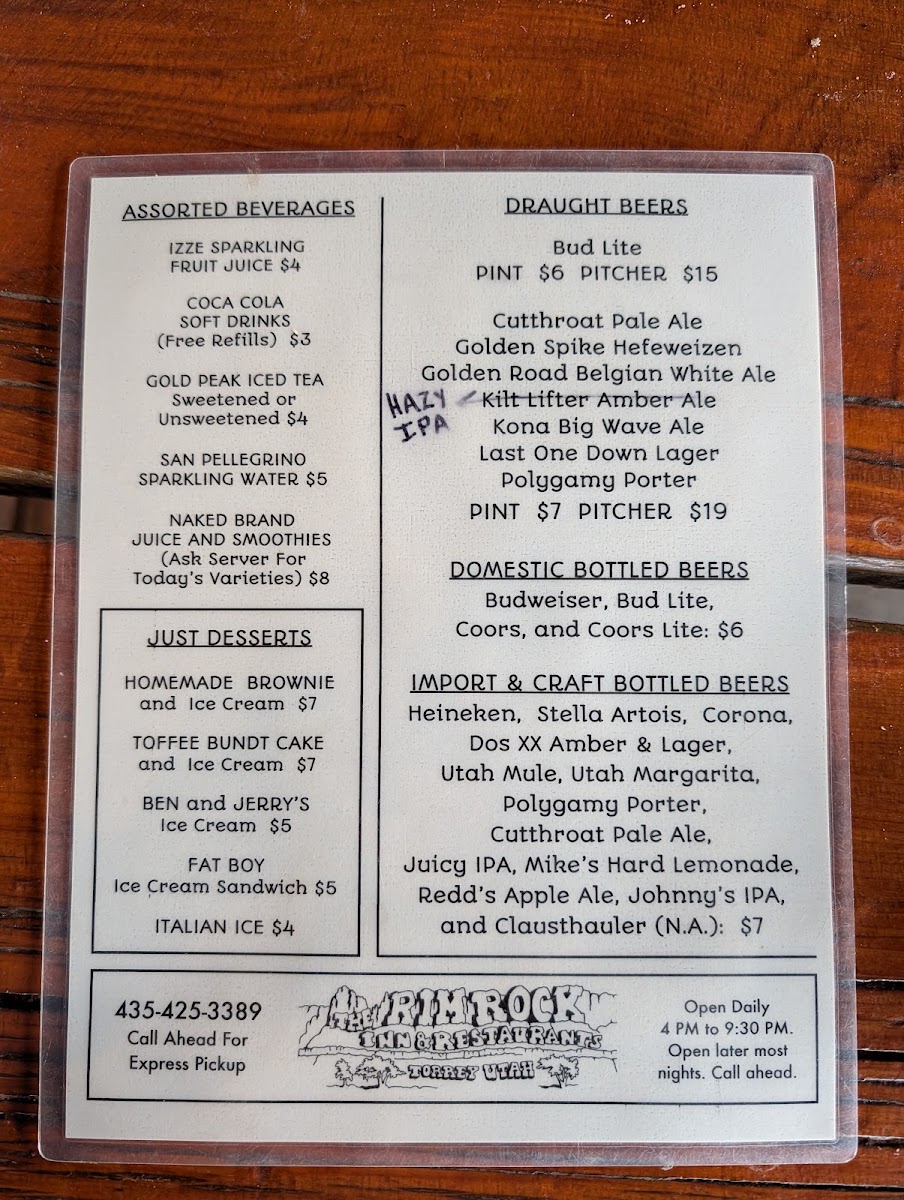 ASSORTED BEVERAGES
IZZE SPARKLING
FRUIT JUICE $4
COCA COLA
SOFT DRINKS
(Free Refills) $3
GOLD PEAK ICED TEA
Sweetened or
Unsweetened $4
SAN PELLEGRINO
SPARKLING WATER $5
NAKED BRAND
JUICE AND SMOOTHIES
(Ask Server For
Today's Varieties) $8
JUST DESSERTS
HOMEMADE BROWNIE
and Ice Cream $7
TOFFEE BUNDT CAKE
and Ice Cream $7
BEN and JERRY'S
Ice Cream $5
FAT BOY
Ice Cream Sandwich $5
ITALIAN ICE $4
DRAUGHT BEERS
Bud Lite
PINT $6 PITCHER $15
Cutthroat Pale Ale
Golden Spike Hefeweizen
Golden Road Belgian White Ale
HAZY
IPA
Kilt Lifter Amber Ale
Kona Big Wave Ale
Last One Down Lager
Polygamy Porter
PINT $7 PITCHER $19
DOMESTIC BOTTLED BEERS
Budweiser, Bud Lite,
Coors, and Coors Lite: $6
IMPORT & CRAFT BOTTLED BEERS
Heineken, Stella Artois, Corona,
Dos XX Amber & Lager,
Utah Mule, Utah Margarita,
Polygamy Porter,
Cutthroat Pale Ale,
Juicy IPA, Mike's Hard Lemonade,
Redd's Apple Ale, Johnny's IPA,
and Clausthauler (N.A.): $7
435-425-3389
Call Ahead For
Express Pickup
THE RIM ROCK
INN & RESTAURANTS
TORREY UTAH
Open Daily
4 PM to 9:30 PM.
Open later most
nights. Call ahead.